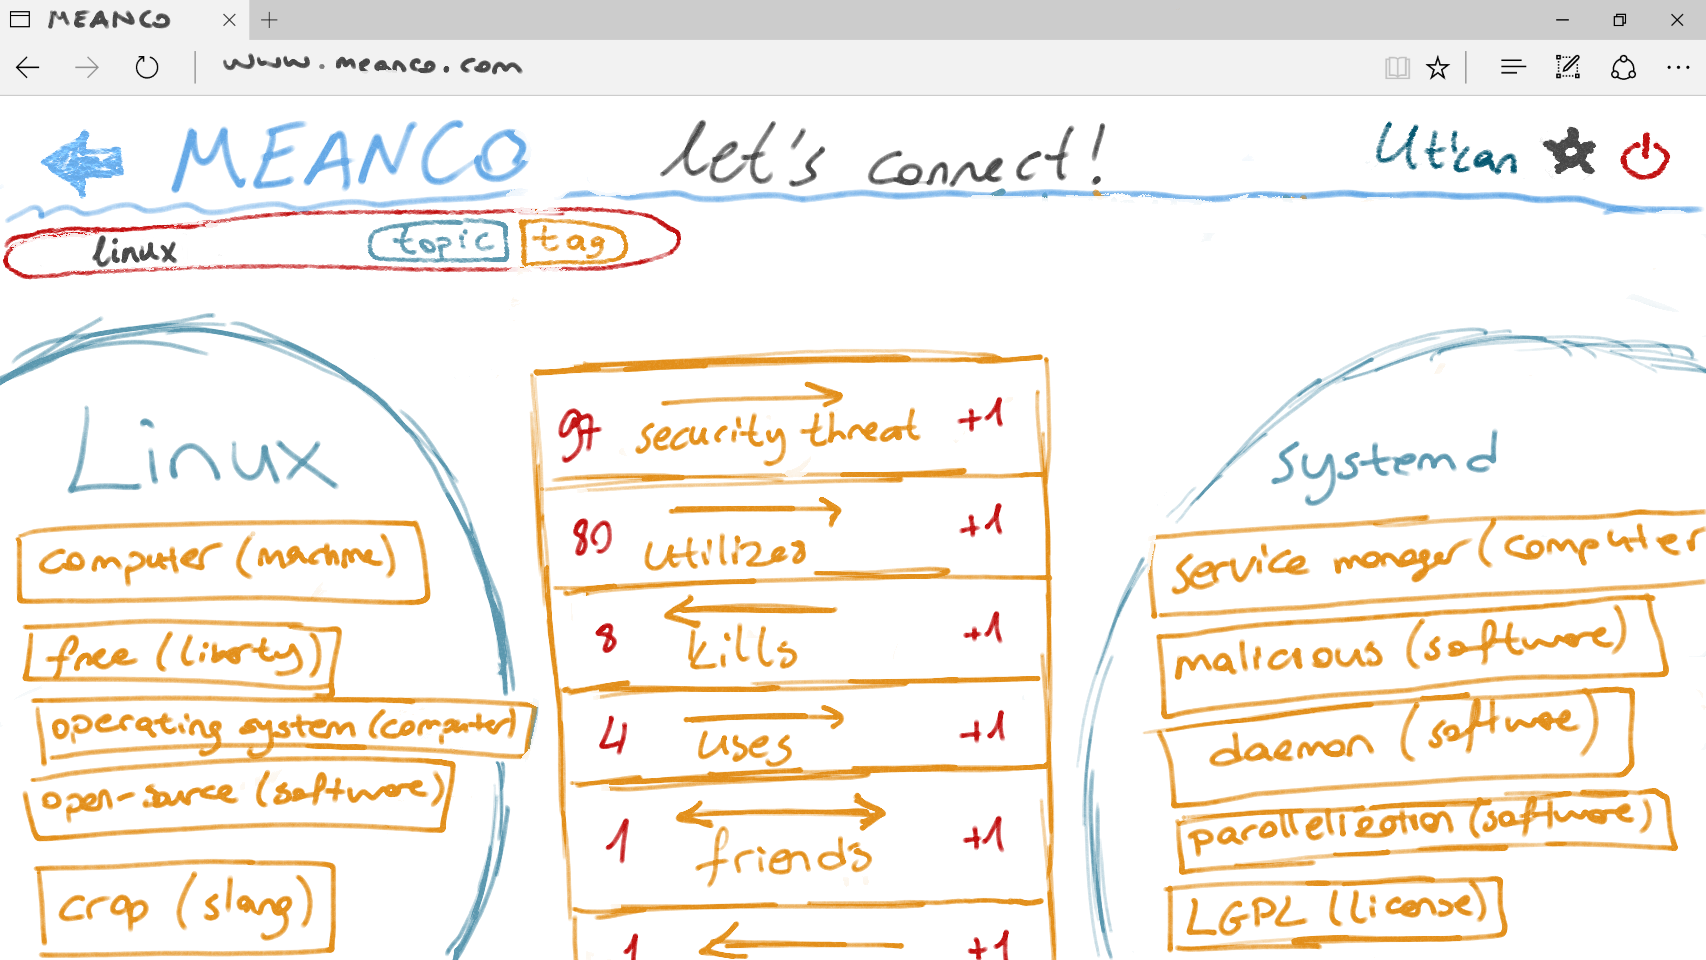 MEANCO
www.meanco.com
MEANCO let's connect! Utkan
linux topic tag
Linux
computer (machine)
free (liberty)
operating system (computer)
open-source (software)
crap (slang)
97 security threat +1
80 utilizes +1
8 kills +1
4 uses +1
1 friends +1
1 +1
systemd
service manager (computer
malicious (software)
daemon (software)
parallelization (software)
LGPL (license)